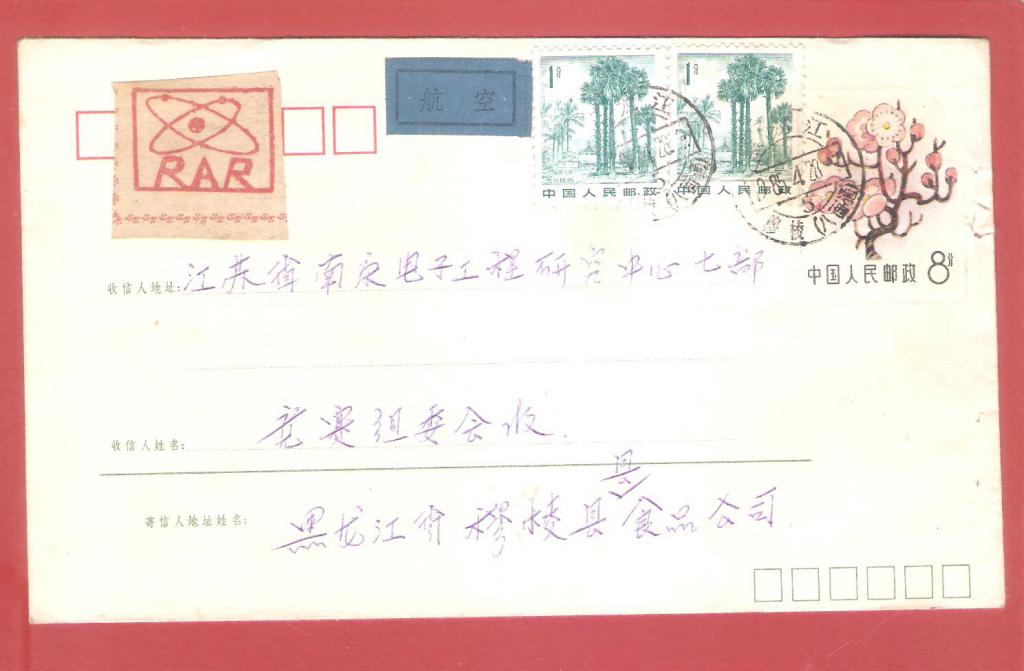 航空
RAR
1分
中国人民邮政
1分
中国人民邮政
中国人民邮政 8分
收信人地址: 江苏省南京电子工程研究中心七部
收信人姓名: 竞赛组委会收
县
寄信人地址姓名: 黑龙江省穆棱县食品公司